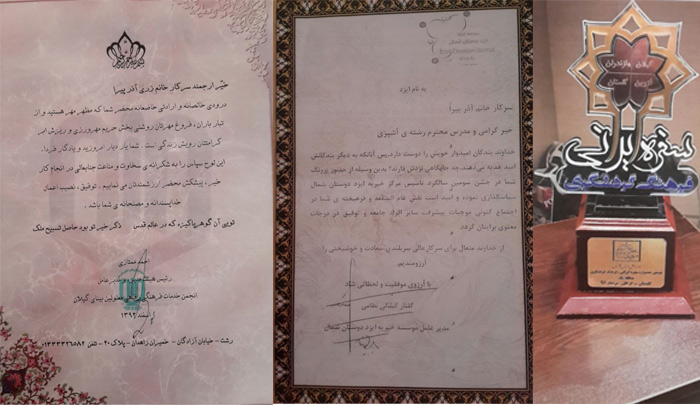 خیّر ارجمند سرکار خانم زری آذر پیرا
درودی خالصانه و ارادتی خاضعانه محضر شما که مظهر مهر هستید و از
تبار باران، فروغ مهرتان روشنی بخش حریم مهرورزی و ریزش ابر
کرامتتان رویش زندگی است. شما یار دیار امروزید و یادگار فردا.
این لوح سپاس را به شکرانه ی سخاوت و مناعت جنابعالی در انجام کار
خیر، پیشکش محضر ارزشمندتان می نماییم. توفیق، نصیب اعمال
خداپسندانه و مصلحانه ی شما باد.
تویی آن گوهر پاکیزه که در عالم قدس ذکر خیر تو بود حاصل تسبیح ملک
احمد
رئیس هیئت مدیره و مدیر عامل
انجمن خدمات فرهنگی معلولین بینای گیلان
اسفند ۱۳۹۲
رشت - خیابان آزادگان - خمیران زاهدان - پلاک ۲۰ - تلفن ۰۱۳۳۳۳۲۶۵۸۴
به نام ایزد
سرکار خانم (آذر پیرا)
خیر گرامی و مدرس محترم رشته ی آشپزی
خداوند بندگان امیدوار خویش را دوست دارد، پس آنانکه به دیگر بندگانش
امید هدیه می‌دهند، چه جایگاهی نزدش دارند؟ بدین وسیله از حضور پررنگ
شما در جشن سومین سالگرد تاسیس مرکز خیریه ایزد دوستان شمال
سپاسگذاری نموده و امید است نقش عام المنفعه و فرهیخته ی شما در
اجتماع کنونی موجبات پیشرفت سایر افراد جامعه و توفیق در درجات
معنوی برایتان گردد.
از خداوند متعال برای سرکار عالی سربلندی، سعادت و خوشبختی را
آرزومندیم.
با آرزوی موفقیت و لحظاتی شاد
گفتار گیلانی نظامی
مدیر عامل موسسه خیریه ایزد دوستان شمال
گیلان مازندران
قزوین گلستان
سفره ایرانی
فرهنگ گردشگری